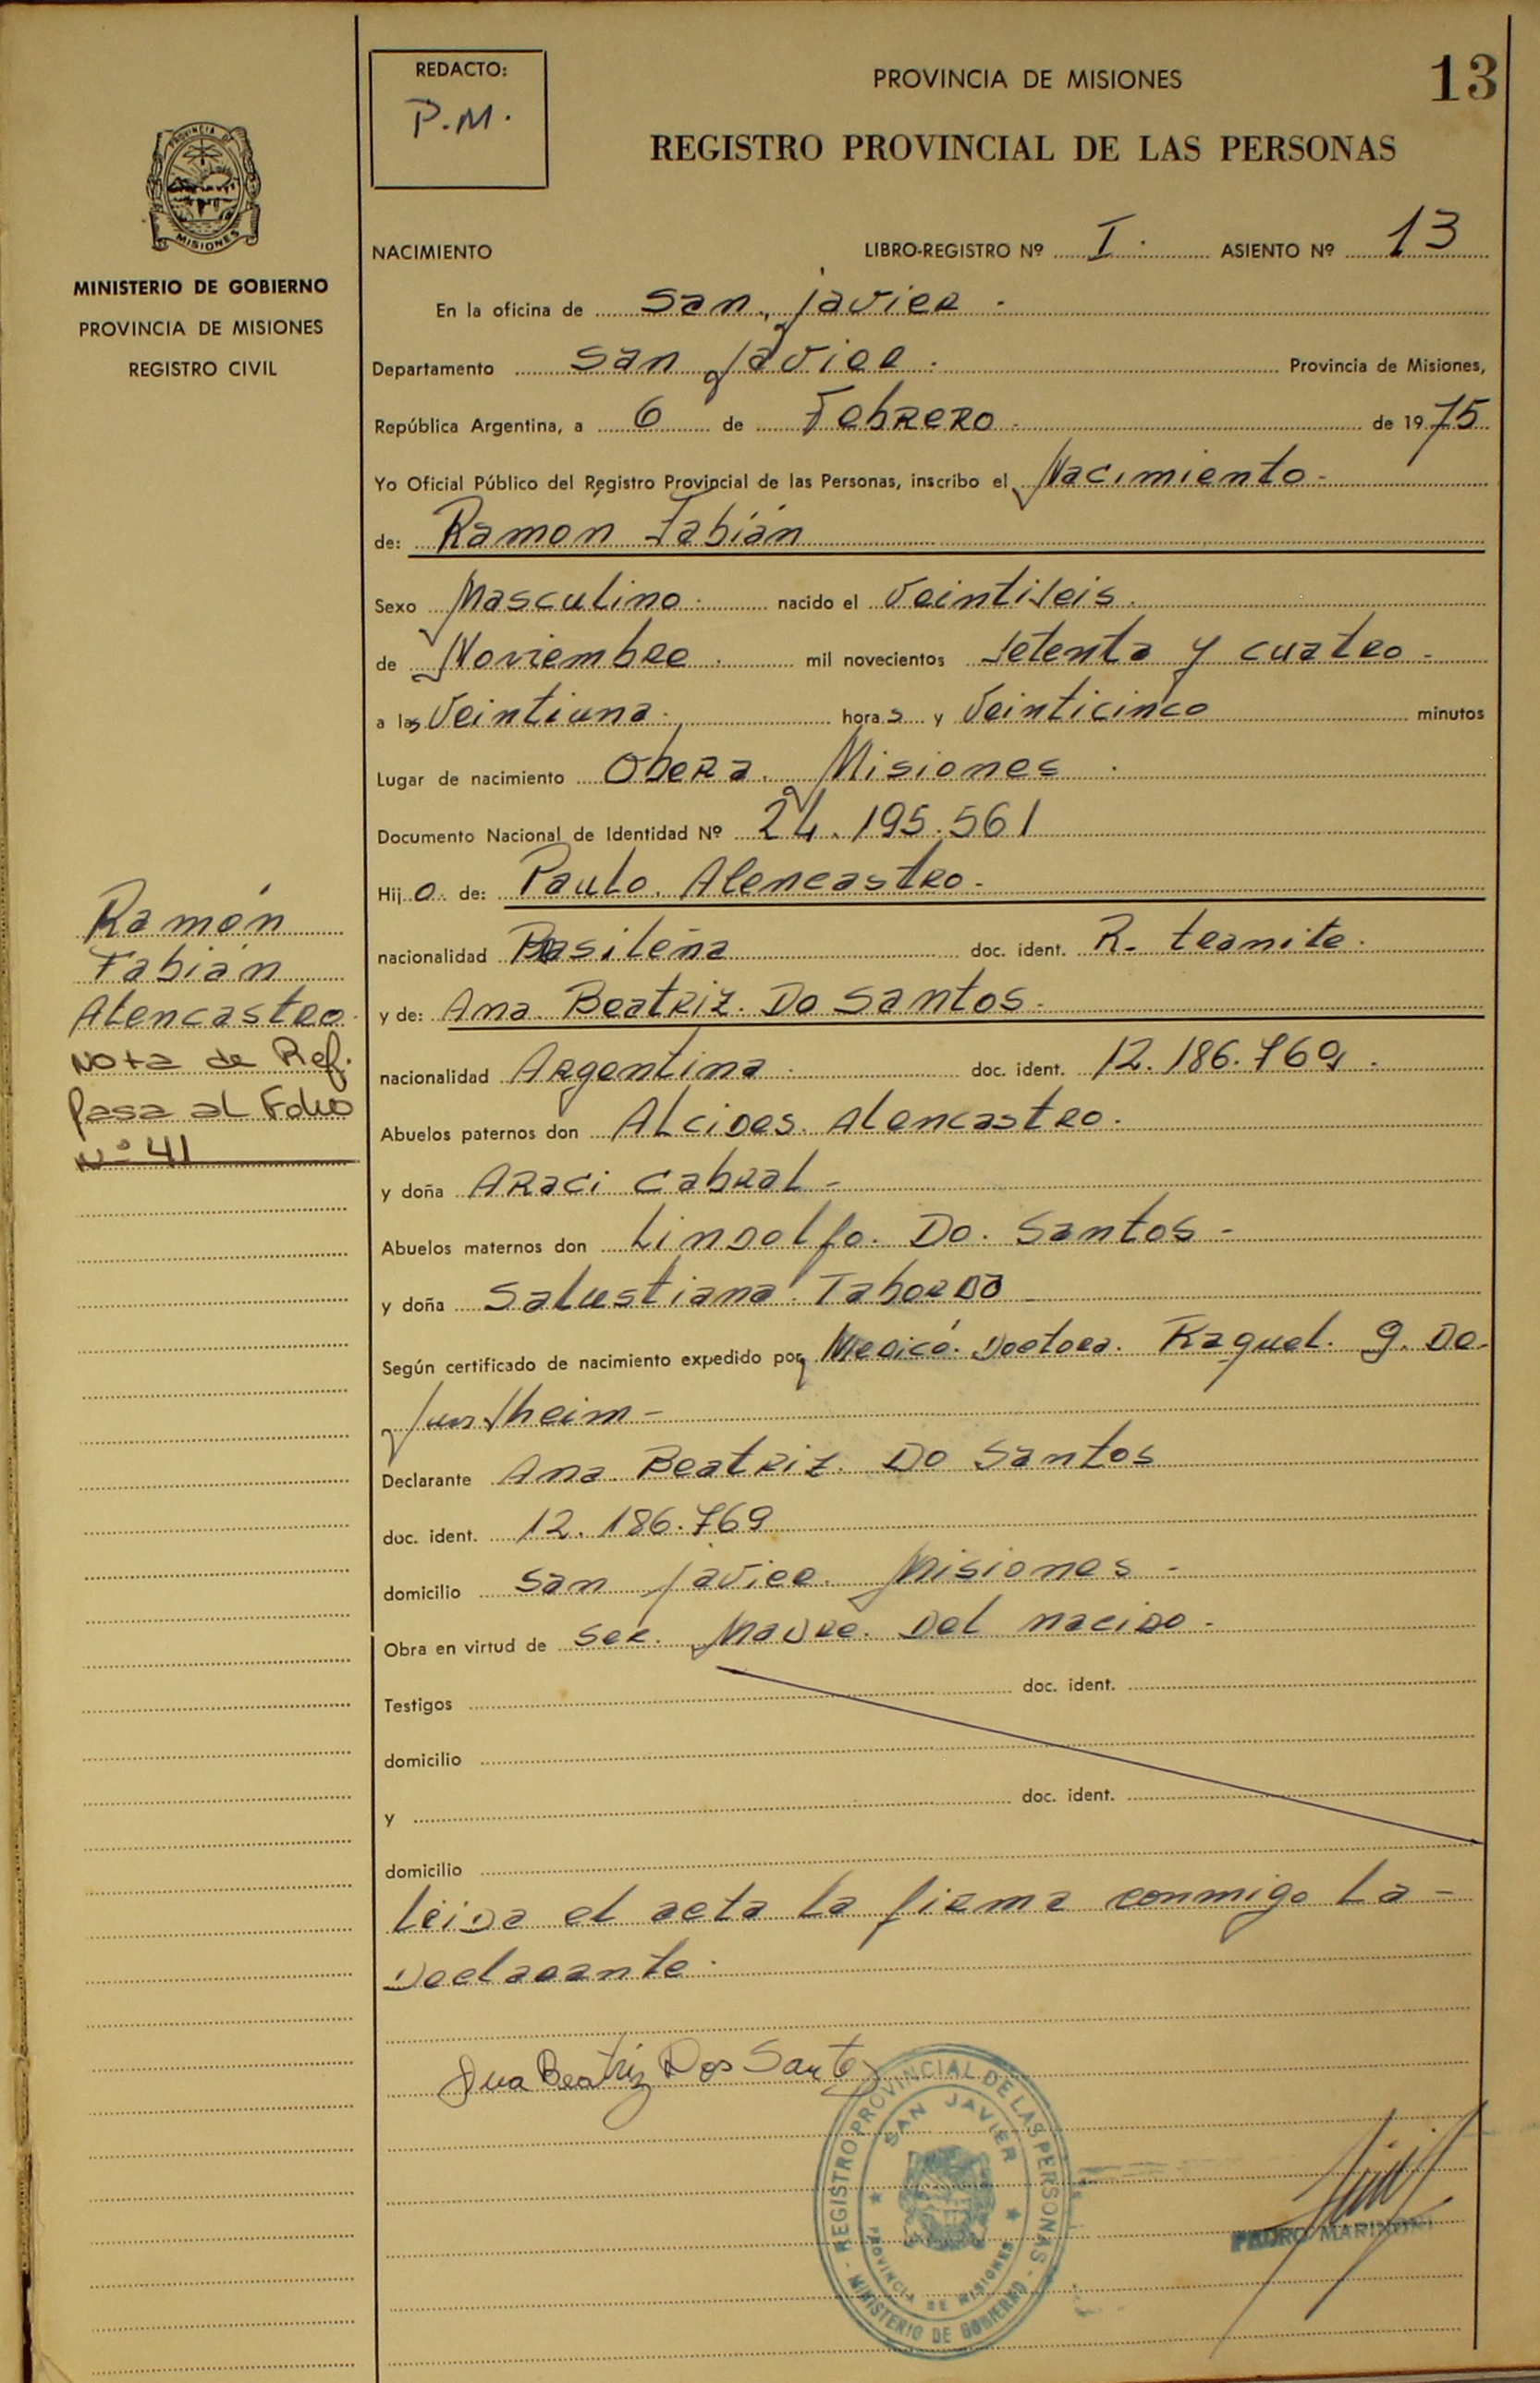 REDACTO:
P.M.
PROVINCIA DE MISIONES
13
REGISTRO PROVINCIAL DE LAS PERSONAS
PROVINCIA DE
MISIONES
MINISTERIO DE GOBIERNO
PROVINCIA DE MISIONES
REGISTRO CIVIL
NACIMIENTO LIBRO-REGISTRO Nº I. ASIENTO Nº 13
En la oficina de San Javier.
Departamento San Javier. Provincia de Misiones,
República Argentina, a 6 de Febrero. de 1975
Yo Oficial Público del Registro Provincial de las Personas, inscribo el Nacimiento-
de: Ramón Fabián
Sexo Masculino. nacido el Veintiseis.
de Noviembre. mil novecientos setenta y cuatro-
a las Veintiuna. horas y Veinticinco minutos
Lugar de nacimiento Obera. Misiones.
Documento Nacional de Identidad Nº 24.195.561
Hijo. de: Paulo. Alencastro-
nacionalidad Brasileña doc. ident. R. tramite.
y de: Ana. Beatriz. Do Santos-
nacionalidad Argentina. doc. ident. 12.186.769.
Abuelos paternos don Alcides. Alencastro.
y doña Araci Cabral-
Abuelos maternos don Lindolfo. Do. Santos-
y doña Salustiana Taborda
Según certificado de nacimiento expedido por Medico. Doctora. Raquel. G. De-
heim-
Declarante Ana. Beatriz. Do Santos
doc. ident. 12.186.769
domicilio San Javier. Misiones-
Obra en virtud de ser. Madre. Del nacido-
Testigos doc. ident.
domicilio
y doc. ident.
domicilio
Leida el acta la firma conmigo La-
Declarante.
Ramón
Fabián
Alencastro.
Nota de Ref.
Pasa al Folio
Nº 41
Ana Beatriz Dos Santos
REGISTRO PROVINCIAL DE LAS PERSONAS
SAN JAVIER
PROVINCIA DE MISIONES
MINISTERIO DE GOBIERNO
PEDRO MARINONI